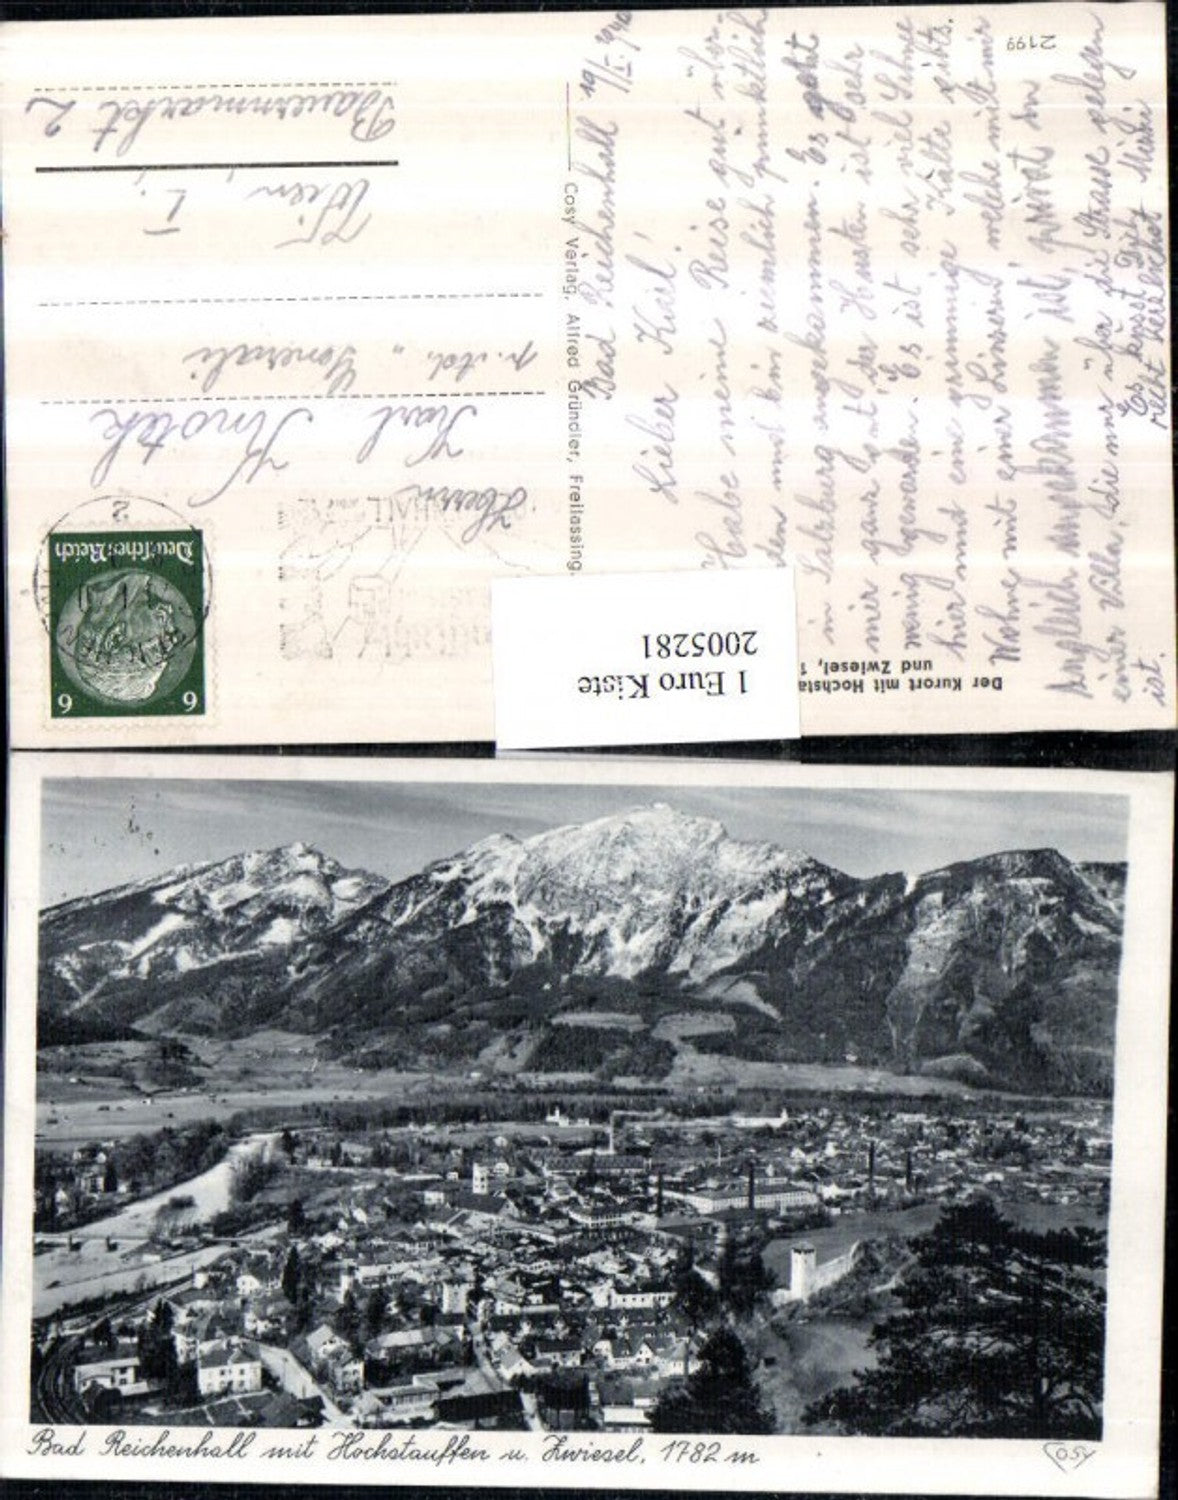 Bauernmarkt 2
Wien, I.
"Generali
Karl Knotek
Herrn
Deutsches Reich
6 6
Cosy Verlag, Alfred Gründler, Freilassing.
2199
Bad Reichenhall 19/I. 1940
Lieber Karl!
Habe meine Reise gut über-
den und bin ziemlich pünktlich
in Salzburg angekommen. Es geht
mir ganz gut, der Husten ist sehr
wenig geworden. Es ist sehr viel Schnee
hier und eine grimmige Kälte gibts.
Wohne mit einer Linzerin, welche mit mir
zugleich angekommen ist, privat in
einer Villa, die nur über die Strasse gelegen
ist.
Es küsst Dich
recht herzlichst Mizzi
Der Kurort mit Hochsta
und Zwiesel, 1
1 Euro Kiste
2005281
Bad Reichenhall mit Hochstauffen u. Zwiesel, 1782 m
COSY